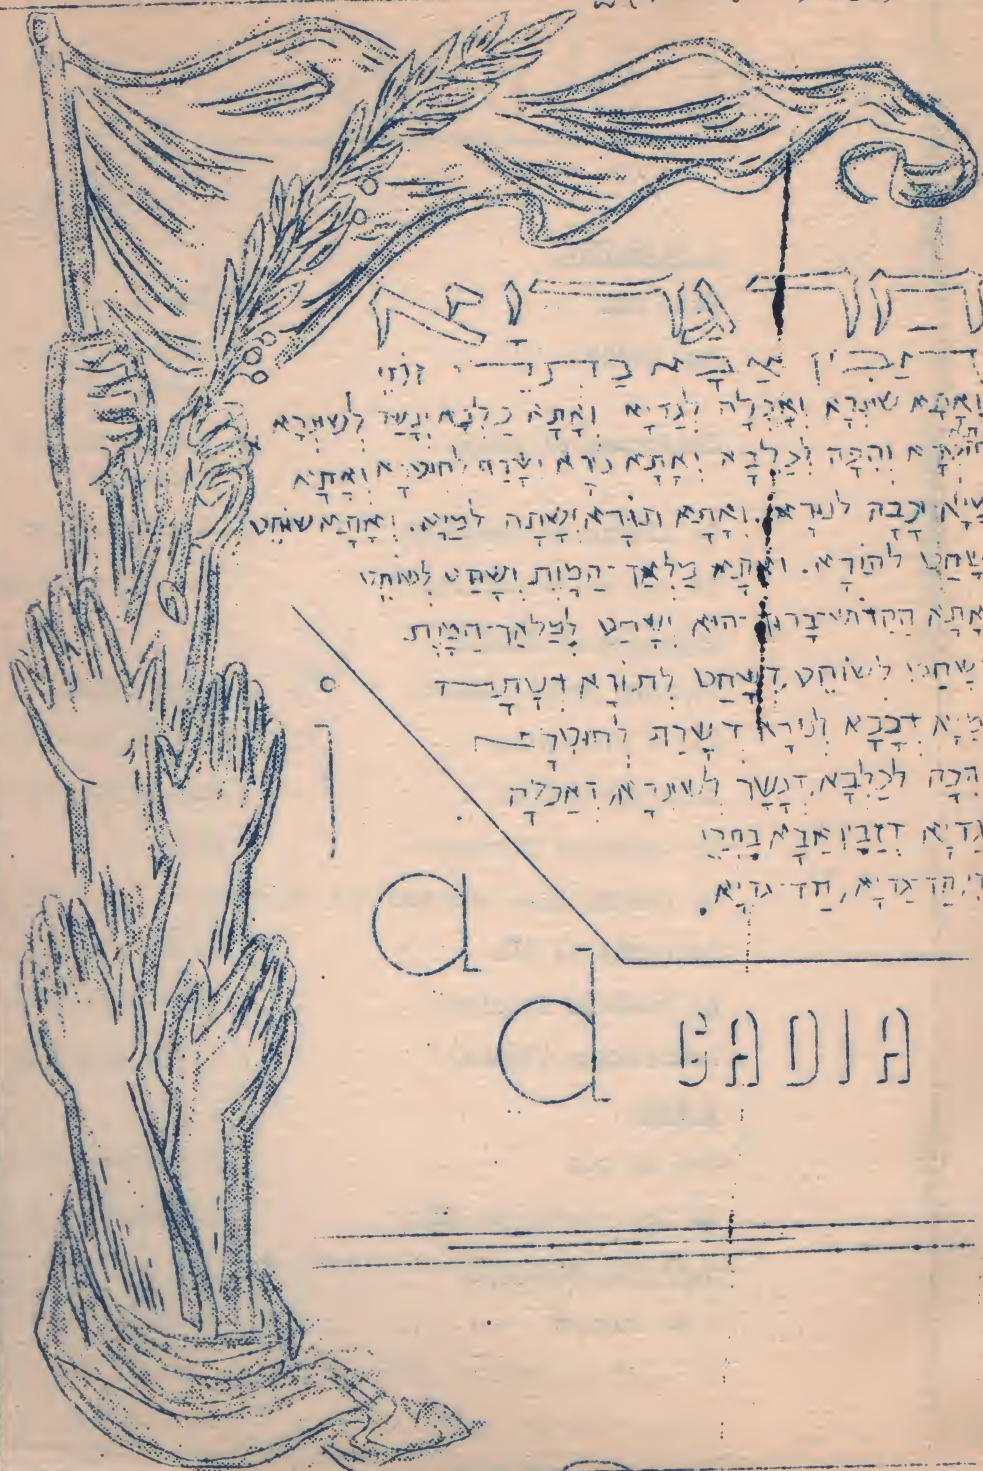 חד גדיא
דזבין אבא בתרי זוזי
וְאָתָא שׁוּנְרָא וְאָכְלָה לְגַדְיָא וְאָתָא כַּלְבָּא וְנָשַׁךְ לְשׁוּנְרָא
וְהִכָּה לְכַלְבָּא וְאָתָא נוּרָא וְשָׂרַף לְחוּטְרָא וְאָתָא
מַיָא וְכָבָה לְנוּרָא. וְאָתָא תוֹרָא וְשָׁתָה לְמַיָא. וְאָתָא שׁוֹחֵט
שָׁחַט לְתוֹרָא. וְאָתָא מַלְאַךְ-הַמָוֶת וְשָׁחַט לְשׁוֹחֵט
אָתָא הַקָדוֹשׁ-בָּרוּךְ-הוּא וְשָׁחַט לְמַלְאַךְ-הַמָוֶת
שָׁחַט לְשׁוֹחֵט, דְשָׁחַט לְתוֹרָא, דְשָׁתָה
מַיָא דְכָבָא לְנוּרָא דְשָׂרַף לְחוּטְרָא
הִכָּה לְכַלְבָּא, דְנָשַׁךְ לְשׁוּנְרָא, דְאָכְלָה
גַדְיָא דְזַבִּין אַבָּא בִּתְרֵי
חַד-גַדְיָא, חַד-גַדְיָא.
ad
GADIA